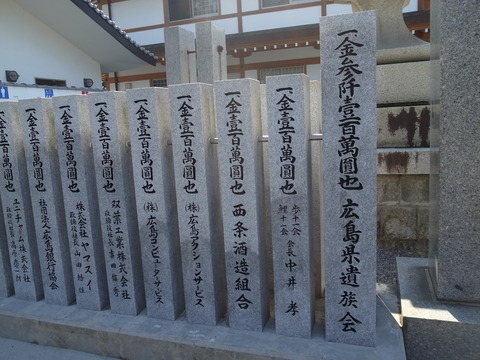 一金参阡壹百萬圓也 広島県遺族会
一金壹百萬圓也
鯉十一会 会長 中井 孝
一金壹百萬圓也 西条酒造組合
一金壹百萬圓也 (株)広島アクションサービス
一金壹百萬圓也 (株)広島コンピュータサービス
一金壹百萬圓也 双葉工業株式会社
一金壹百萬圓也 株式会社ヤマスイ
一金壹百萬圓也 社団法人広島銀行協会
ユニチャーム株式会社